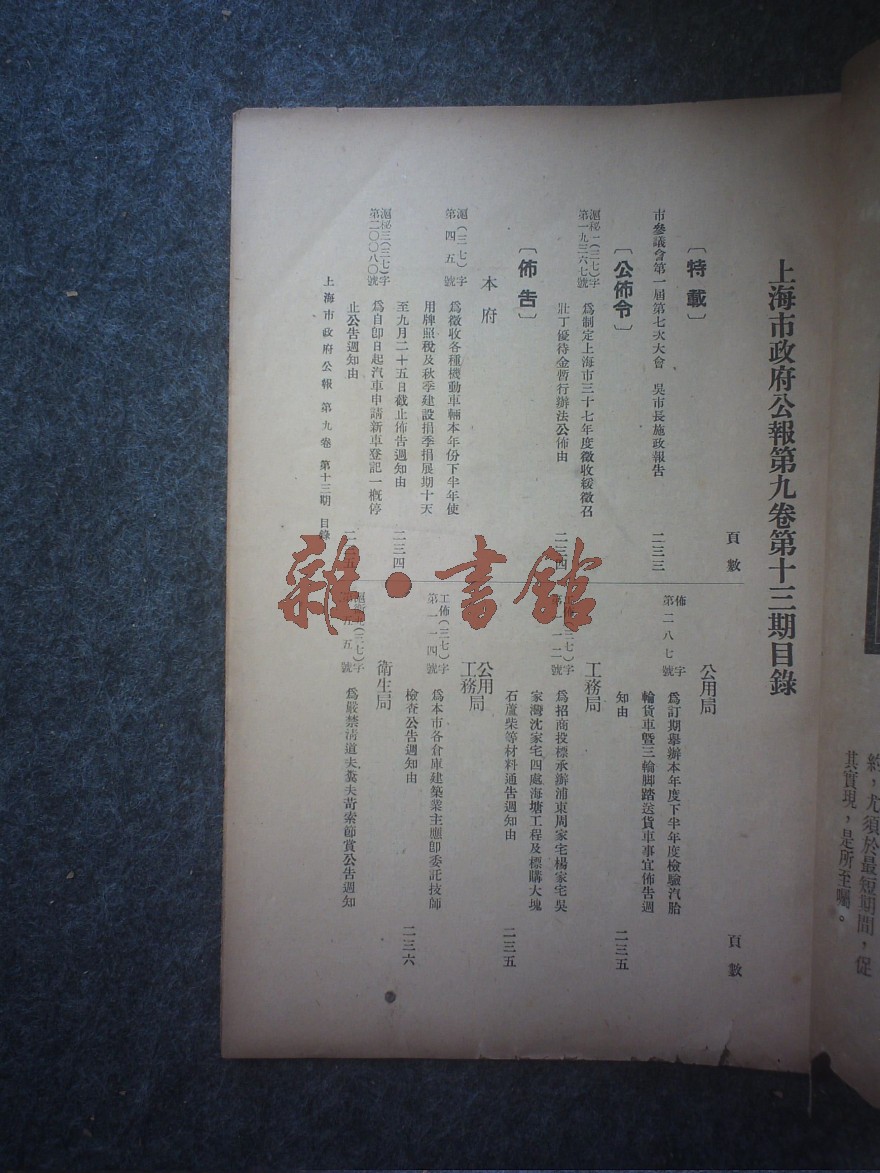 上海市政府公報第九卷第十三期目錄
頁數
〔特載〕
市參議會第一屆第七次大會 吳市長施政報告 二三三
〔公佈令〕
滬秘一(三七)字
第一九三六七號
為制定上海市三十七年度徵收緩徵召
壯丁優待金暫行辦法公佈由 二三四
〔佈告〕
本府
滬(三七)字
第四五號
為徵收各種機動車輛本年份下半年使
用牌照稅及秋季建設捐季捐展期十天
至九月二十五日截止佈告週知由 二三四
滬秘三(三七)字
第二〇〇八〇號
為自卽日起汽車申請新車登記一概停
止公告週知由
上海市政府公報 第九卷 第十三期 目錄
頁數
公用局
佈字
第二八七號
為訂期舉辦本年度下半年度檢驗汽胎
輪貨車暨三輪脚踏送貨車事宜佈告週
知由 二三五
工務局
為招商投標承辦浦東周家宅楊家宅吳
家灣沈家宅四處海塘工程及標購大塊
石蘆柴等材料通告週知由 二三五
公用局
工務局
工佈(三七)字
第一一四號
為本市各倉庫建築業主應卽委託技師
檢查公告週知由 二三六
衛生局
為嚴禁清道夫糞夫苛索節賞公告週知
尤須於最短期間，促
其實現，是所至囑。
雜·書館